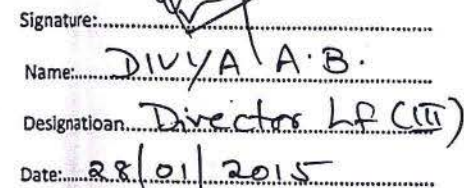 Signature:
Name: DIVYA A.B.
Designatioan Director LF (III)
Date: 28/01/2015